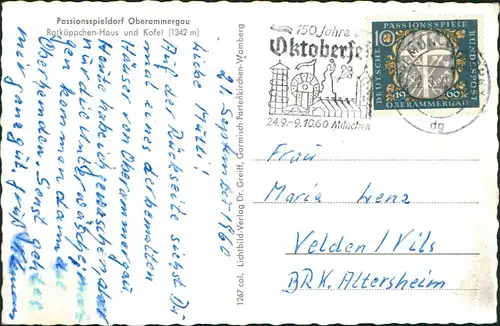 Passionsspieldorf Oberammergau
Rotkäppchen-Haus und Kofel (1342 m)
21. September 1960
Liebe Mutti!
Auf der Rückseite siehst Du
mal eines der bemalten
Häuser von Oberammergau
Heute hab ich gewaschen, aber
gen kommen dann die
Oberhemden. Sonst geht es
mir ganz gut. Grüß
1267 col. Lichtbild-Verlag Dr. Greiff, Garmisch-Partenkirchen-Wamberg
150 Jahre
Oktoberfest
24.9.-9.10.60 München
DEUTSCHE BUNDESPOST
PASSIONSSPIELE
OBERAMMERGAU
10
1960
dg
Frau
Maria Lenz
Velden/Vils
BRK. Altersheim